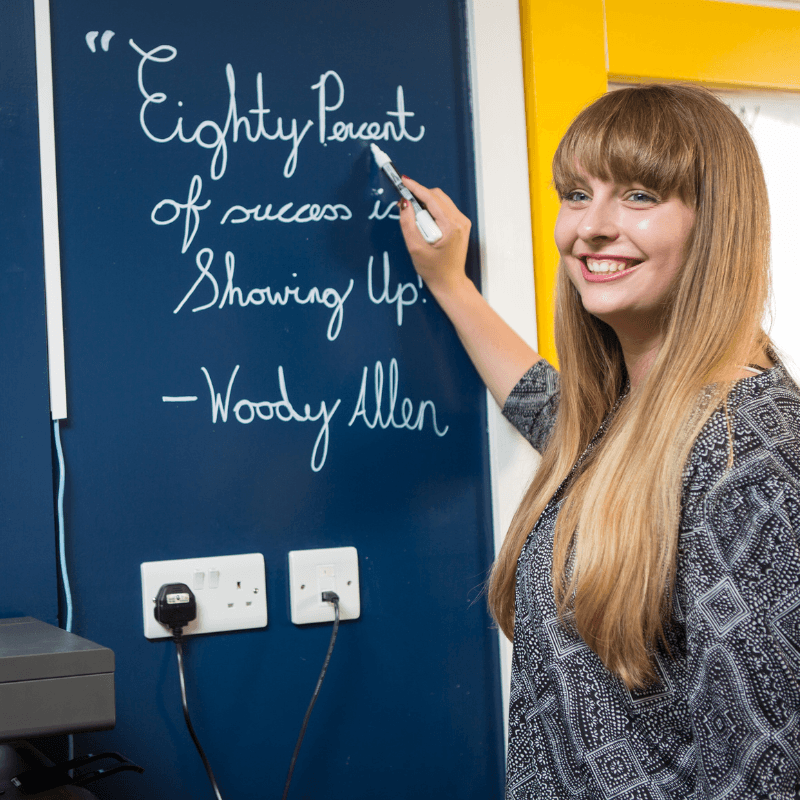 “Eighty Percent
of success is
Showing Up!
- Woody Allen